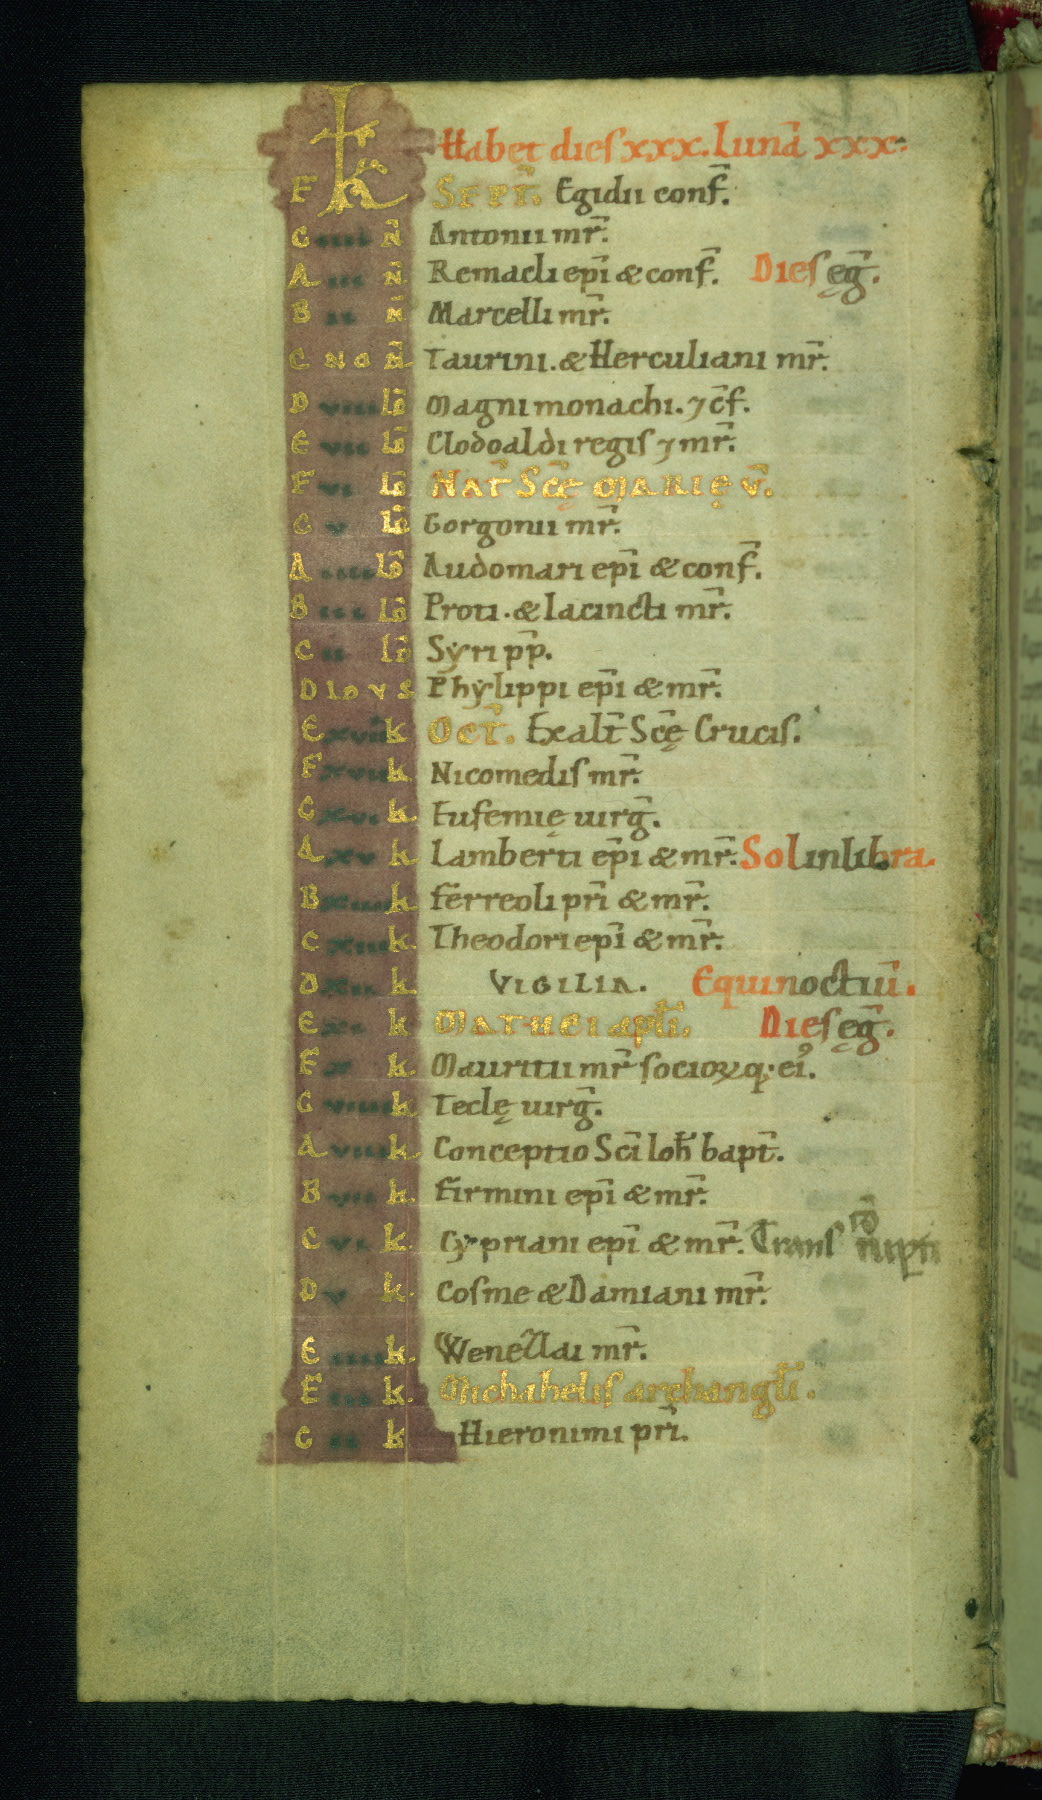 Habet dies xxx. Lunā xxx.
F KL Sept̄. Egidii conf̄.
G iiii N̄ Antonii mr̄.
A iii N̄ Remacli ep̄i & conf̄. Dies ęḡ.
B ii N̄ Marcelli mr̄.
C NO N̄ Taurini. & Herculiani mr̄.
D viii ID̄ Magni monachi. ⁊ c̄f.
E vii ID̄ Clodoaldi regis ⁊ mr̄.
F vi ID̄ Nat̄ Sc̄ę Marię v̄.
G v ID̄ Gorgonii mr̄.
A iiii ID̄ Audomari ep̄i & conf̄.
B iii ID̄ Proti. & Iacincti mr̄.
C ii ID̄ Syri pp̄.
D IDVS Phylippi ep̄i & mr̄.
E xviii k Oct̄. Exalt̄ Sc̄ę Crucis.
F xvii k Nicomedis mr̄.
G xvi k. Eufemię uirḡ.
A xv k Lamberti ep̄i & mr̄. Sol in libra.
B xiiii k Ferreoli pr̄i & mr̄.
C xiii k. Theodori ep̄i & mr̄.
D xii k. VIGILIA. Equinoctiū.
E xi k Mathei apl̄i. Dies ęḡ.
F x k. Mauritii mr̄ socioꝝ q; ei᾿.
G viiii k Teclę uirḡ.
A viii k Conceptio Sc̄i Ioh̄ bapt̄.
B vii k. Firmini ep̄i & mr̄.
C vi k. Cypriani ep̄i & mr̄. Trans̄
D v k. Cosme & Damiani mr̄.
E iiii k. Wenezlai mr̄.
F iii k. Michahelis archangl̄i.
G ii k Hieronimi pr̄i.